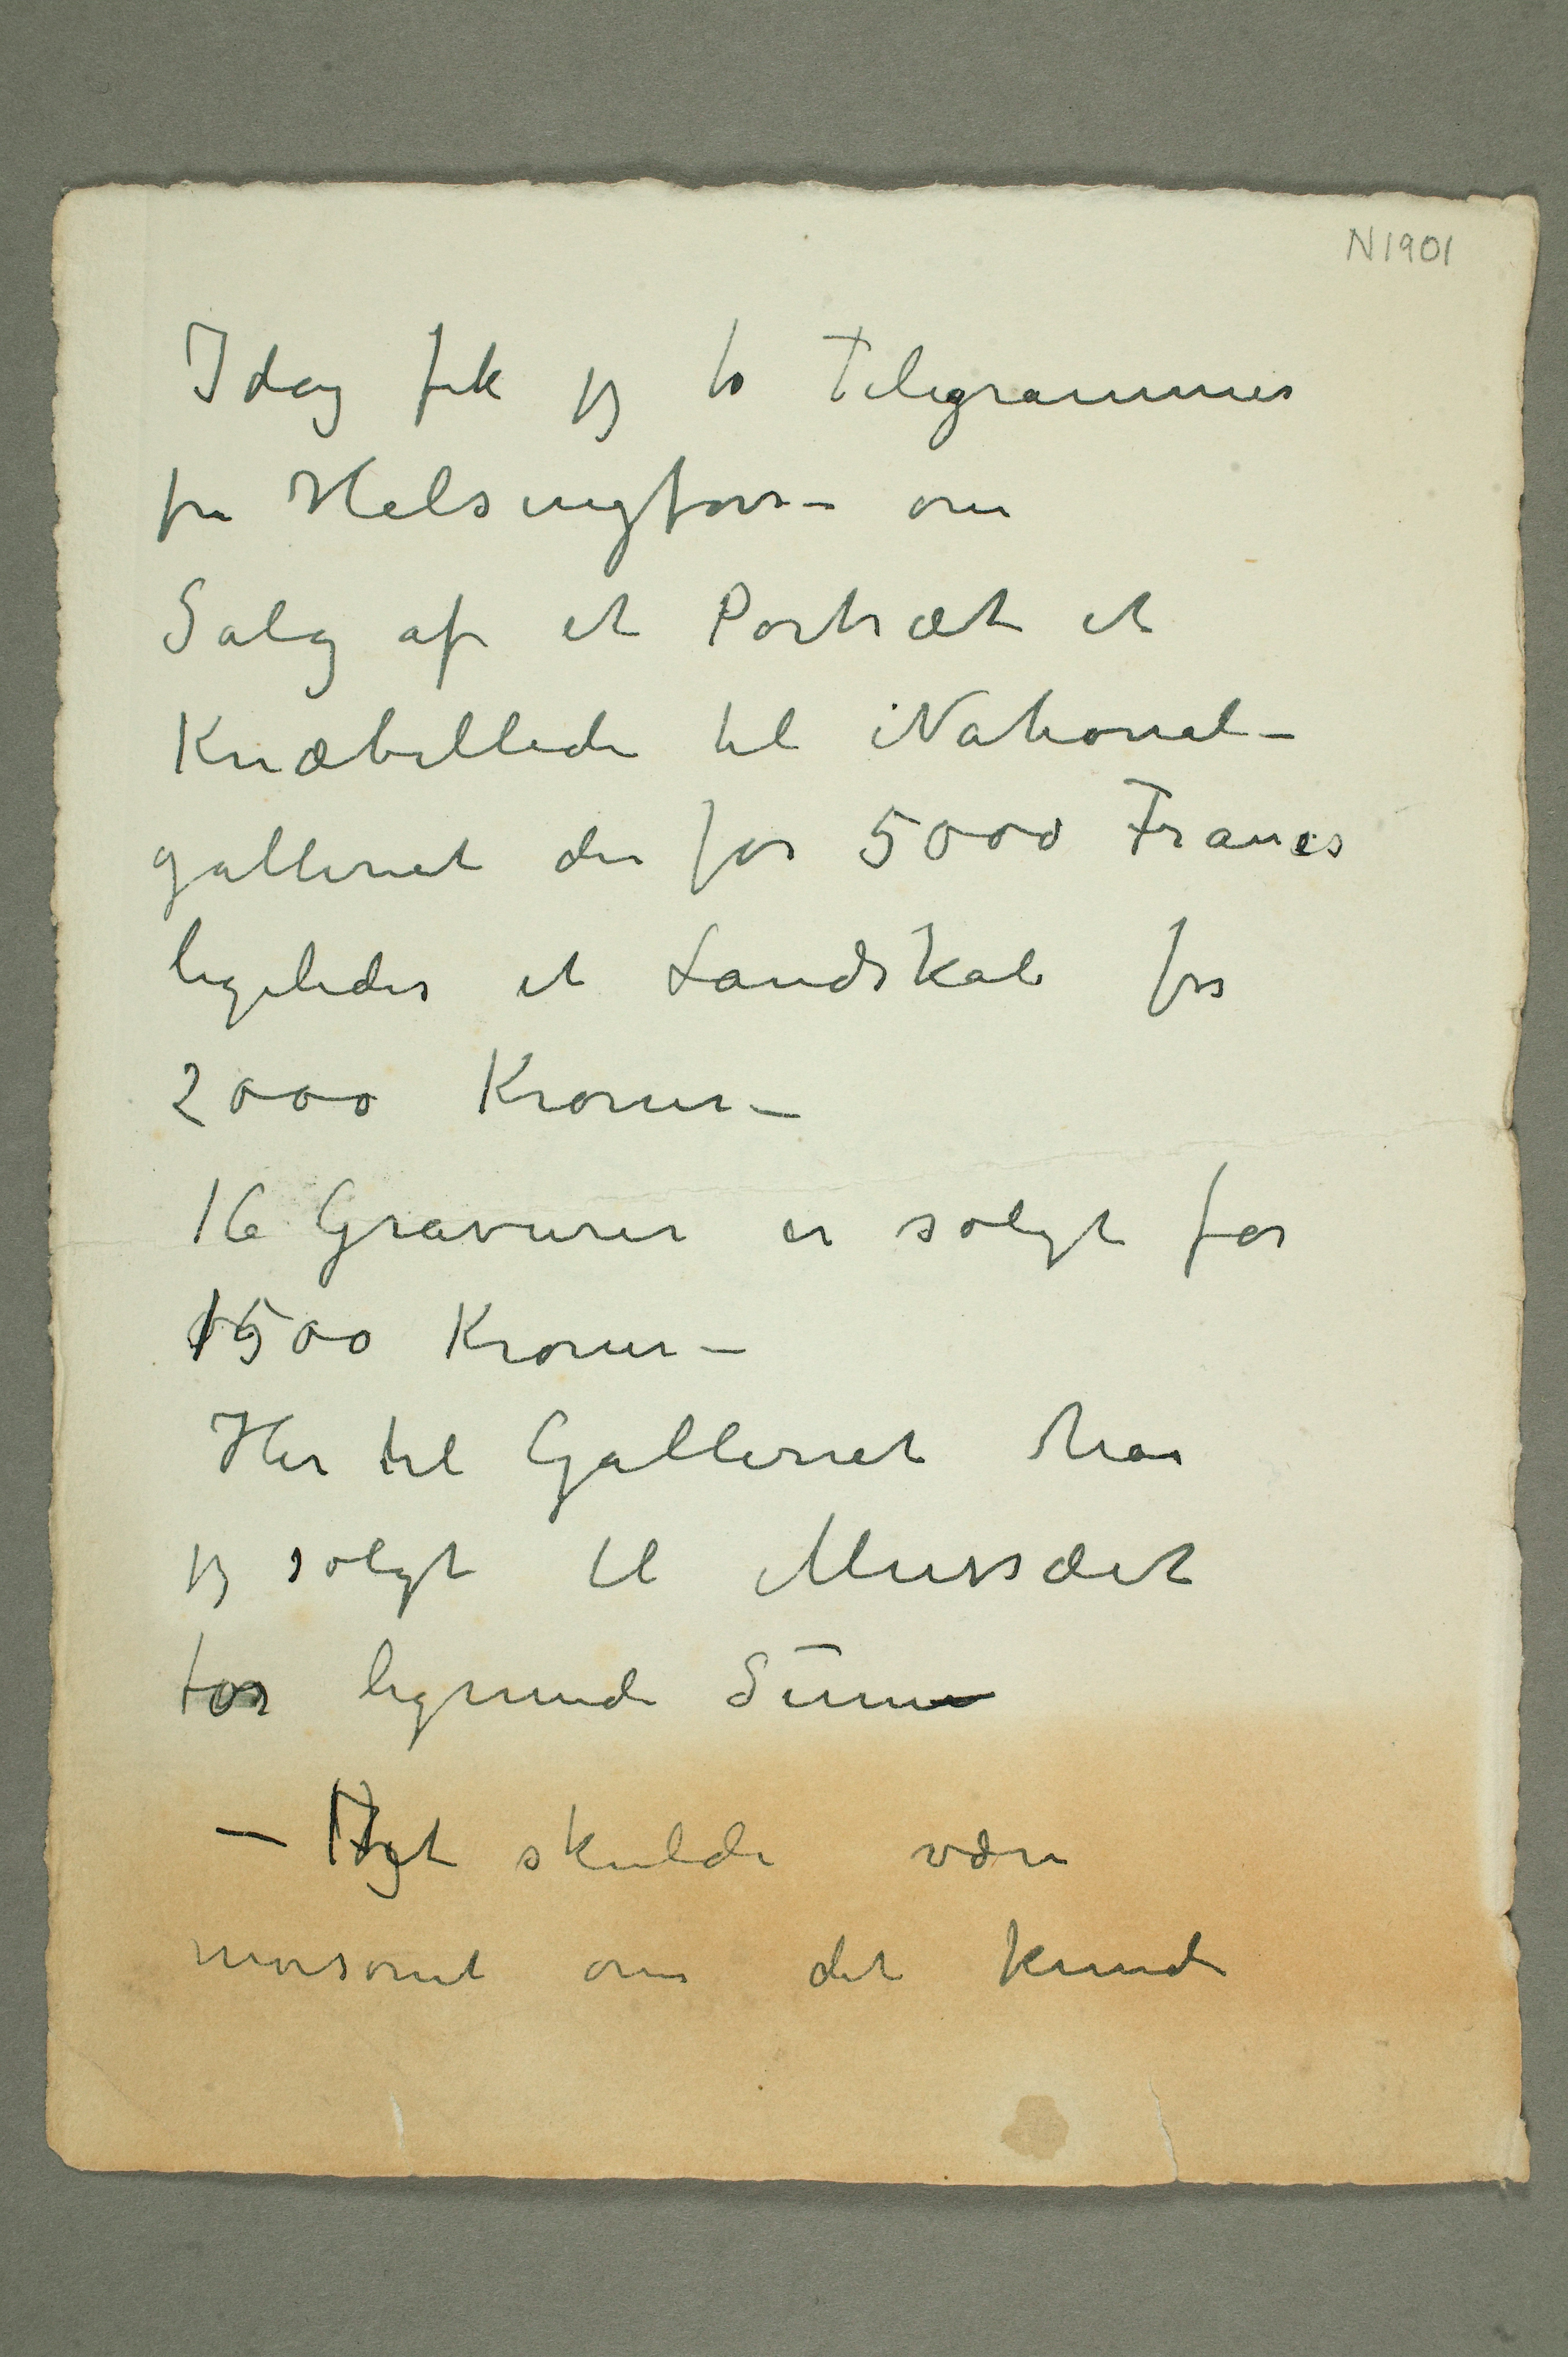 N1901
Idag fik jeg to Telegrammer
fra Helsingfors – om
Salg af et Portræt et
Knæbillede til National-
galleriet der for 5000 Francs
ligeledes et Landskab for
2000 Kroner –
16 Gravurer er solgt for
1500 Kroner –
Her til Galleriet har
jeg solgt til Mussæet
for lignende Summe
– Det skulde være
morsomt om det kunde